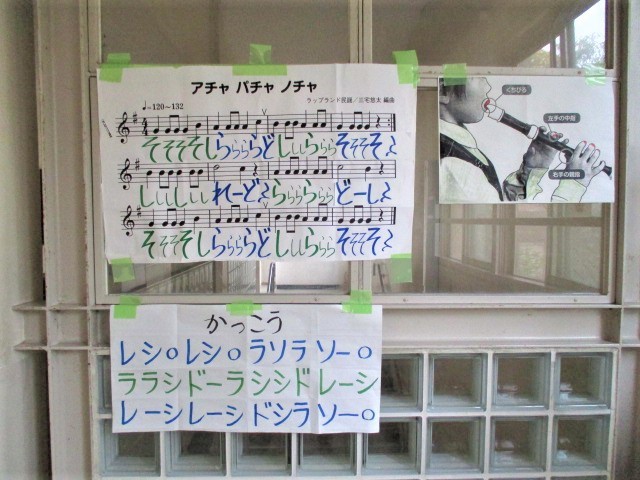 アチャ パチャ ノチャ
ラップランド民謡／三宅悠太 編曲
♩=120～132
そそそそしらららどしししらららそそそそ
しししししれーどらららららどーし
そそそそしらららどしししらららそそそ
くちびる
左手の中指
右手の親指
かっこう
レシoレシo ラソラ ソーo
ララシドーラシシドレーシ
レーシレーシドシラソーo